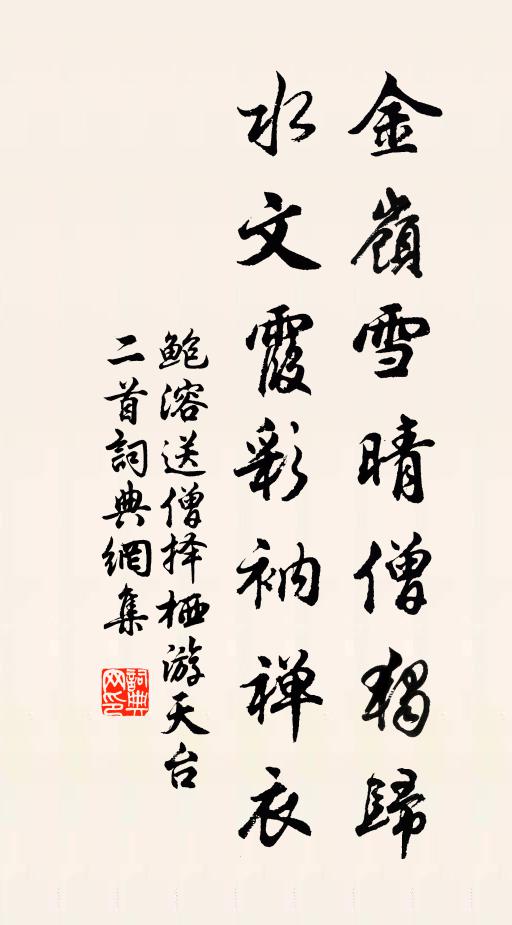 金嶺雪晴僧獨歸
水文霞彩衲禅衣
鲍溶送僧择栖游天台
二首詞典網集
詞典网印